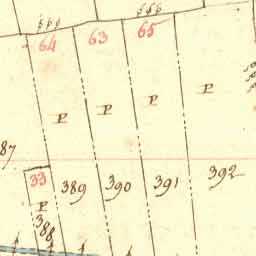 64 63 65
P P P P
87
33 389 390 391 392
P
388